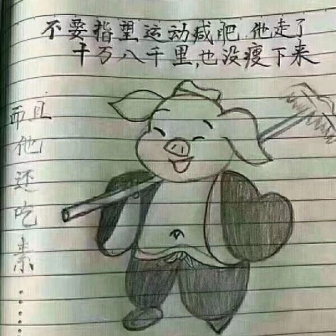 不要指望运动减肥,他走了
十万八千里,也没瘦下来
而且他还吃素……